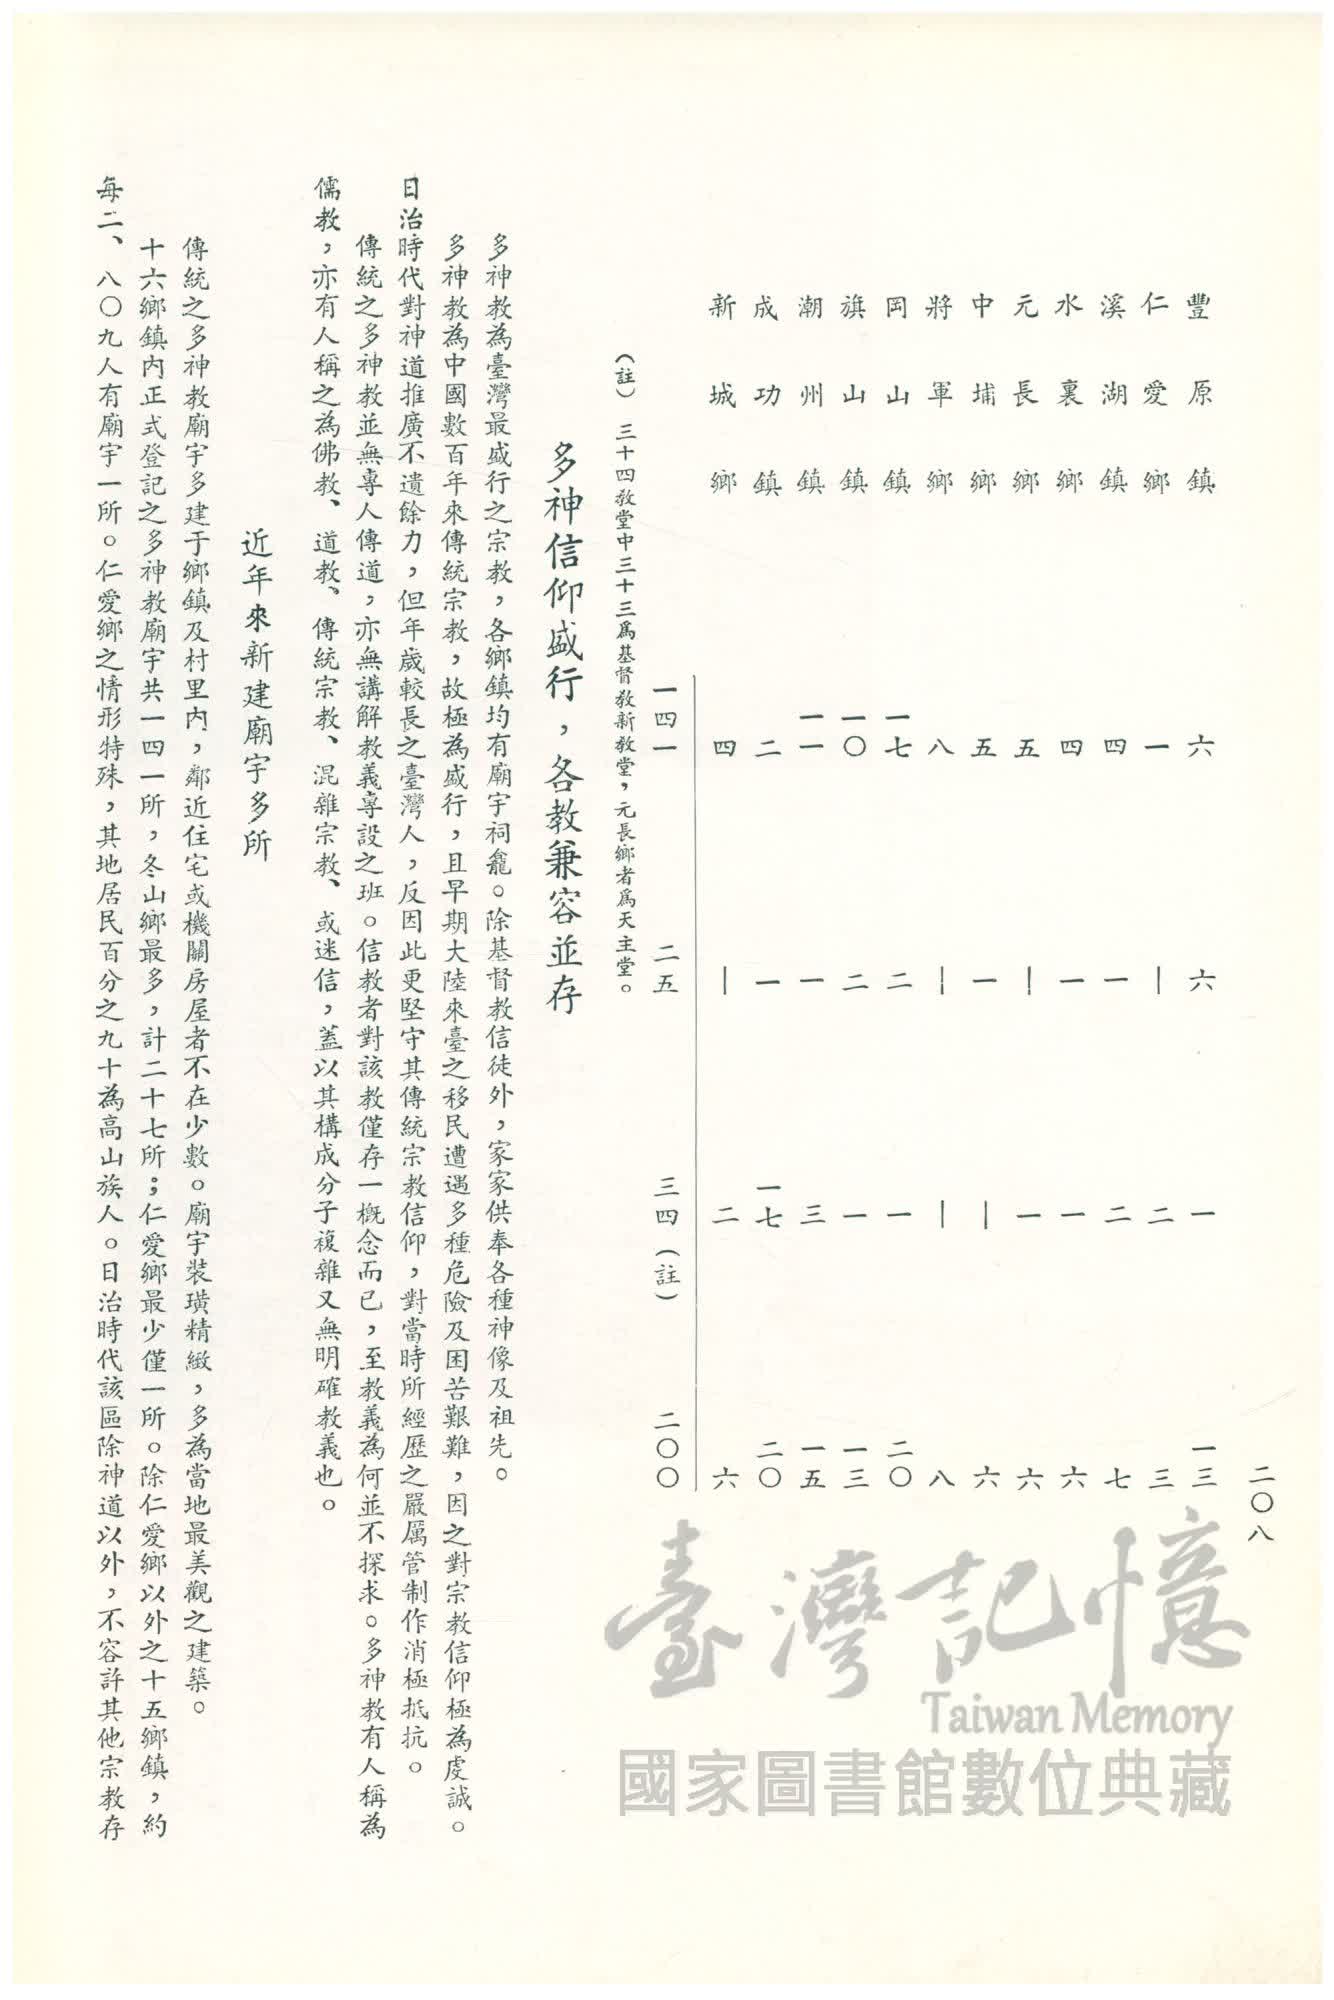 二〇八
豐原鎮 六 六 一 一三
仁愛鄉 一 — 二 三
溪湖鎮 四 一 二 七
水裏鄉 四 一 一 六
元長鄉 五 — 一 六
中埔鄉 五 一 — 六
將軍鄉 八 — — 八
岡山鎮 一七 二 一 二〇
旗山鎮 一〇 二 一 一三
潮州鎮 一一 一 三 一五
成功鎮 二 一 一七 二〇
新城鄉 四 — 二 六
一四一 二五 三四(註) 二〇〇
(註)三十四教堂中三十三爲基督教新教堂,元長鄉者爲天主堂。
多神信仰盛行,各教兼容並存
多神教為臺灣最盛行之宗教,各鄉鎮均有廟宇祠龕。除基督教信徒外,家家供奉各種神像及祖先。
多神教為中國數百年來傳統宗教,故極為盛行,且早期大陸來臺之移民遭遇多種危險及困苦艱難,因之對宗教信仰極為虔誠。
日治時代對神道推廣不遺餘力,但年歲較長之臺灣人,反因此更堅守其傳統宗教信仰,對當時所經歷之嚴厲管制作消極抵抗。
傳統之多神教並無專人傳道,亦無講解教義專設之班。信教者對該教僅存一概念而已,至教義為何並不探求。多神教有人稱為
儒教,亦有人稱之為佛教、道教、傳統宗教、混雜宗教、或迷信,蓋以其構成分子複雜又無明確教義也。
近年來新建廟宇多所
傳統之多神教廟宇多建于鄉鎮及村里內,鄰近住宅或機關房屋者不在少數。廟宇裝璜精緻,多為當地最美觀之建築。
十六鄉鎮內正式登記之多神教廟宇共一四一所,冬山鄉最多,計二十七所;仁愛鄉最少僅一所。除仁愛鄉以外之十五鄉鎮,約
每二、八〇九人有廟宇一所。仁愛鄉之情形特殊,其地居民百分之九十為高山族人。日治時代該區除神道以外,不容許其他宗教存
臺灣記憶
Taiwan Memory
國家圖書館數位典藏